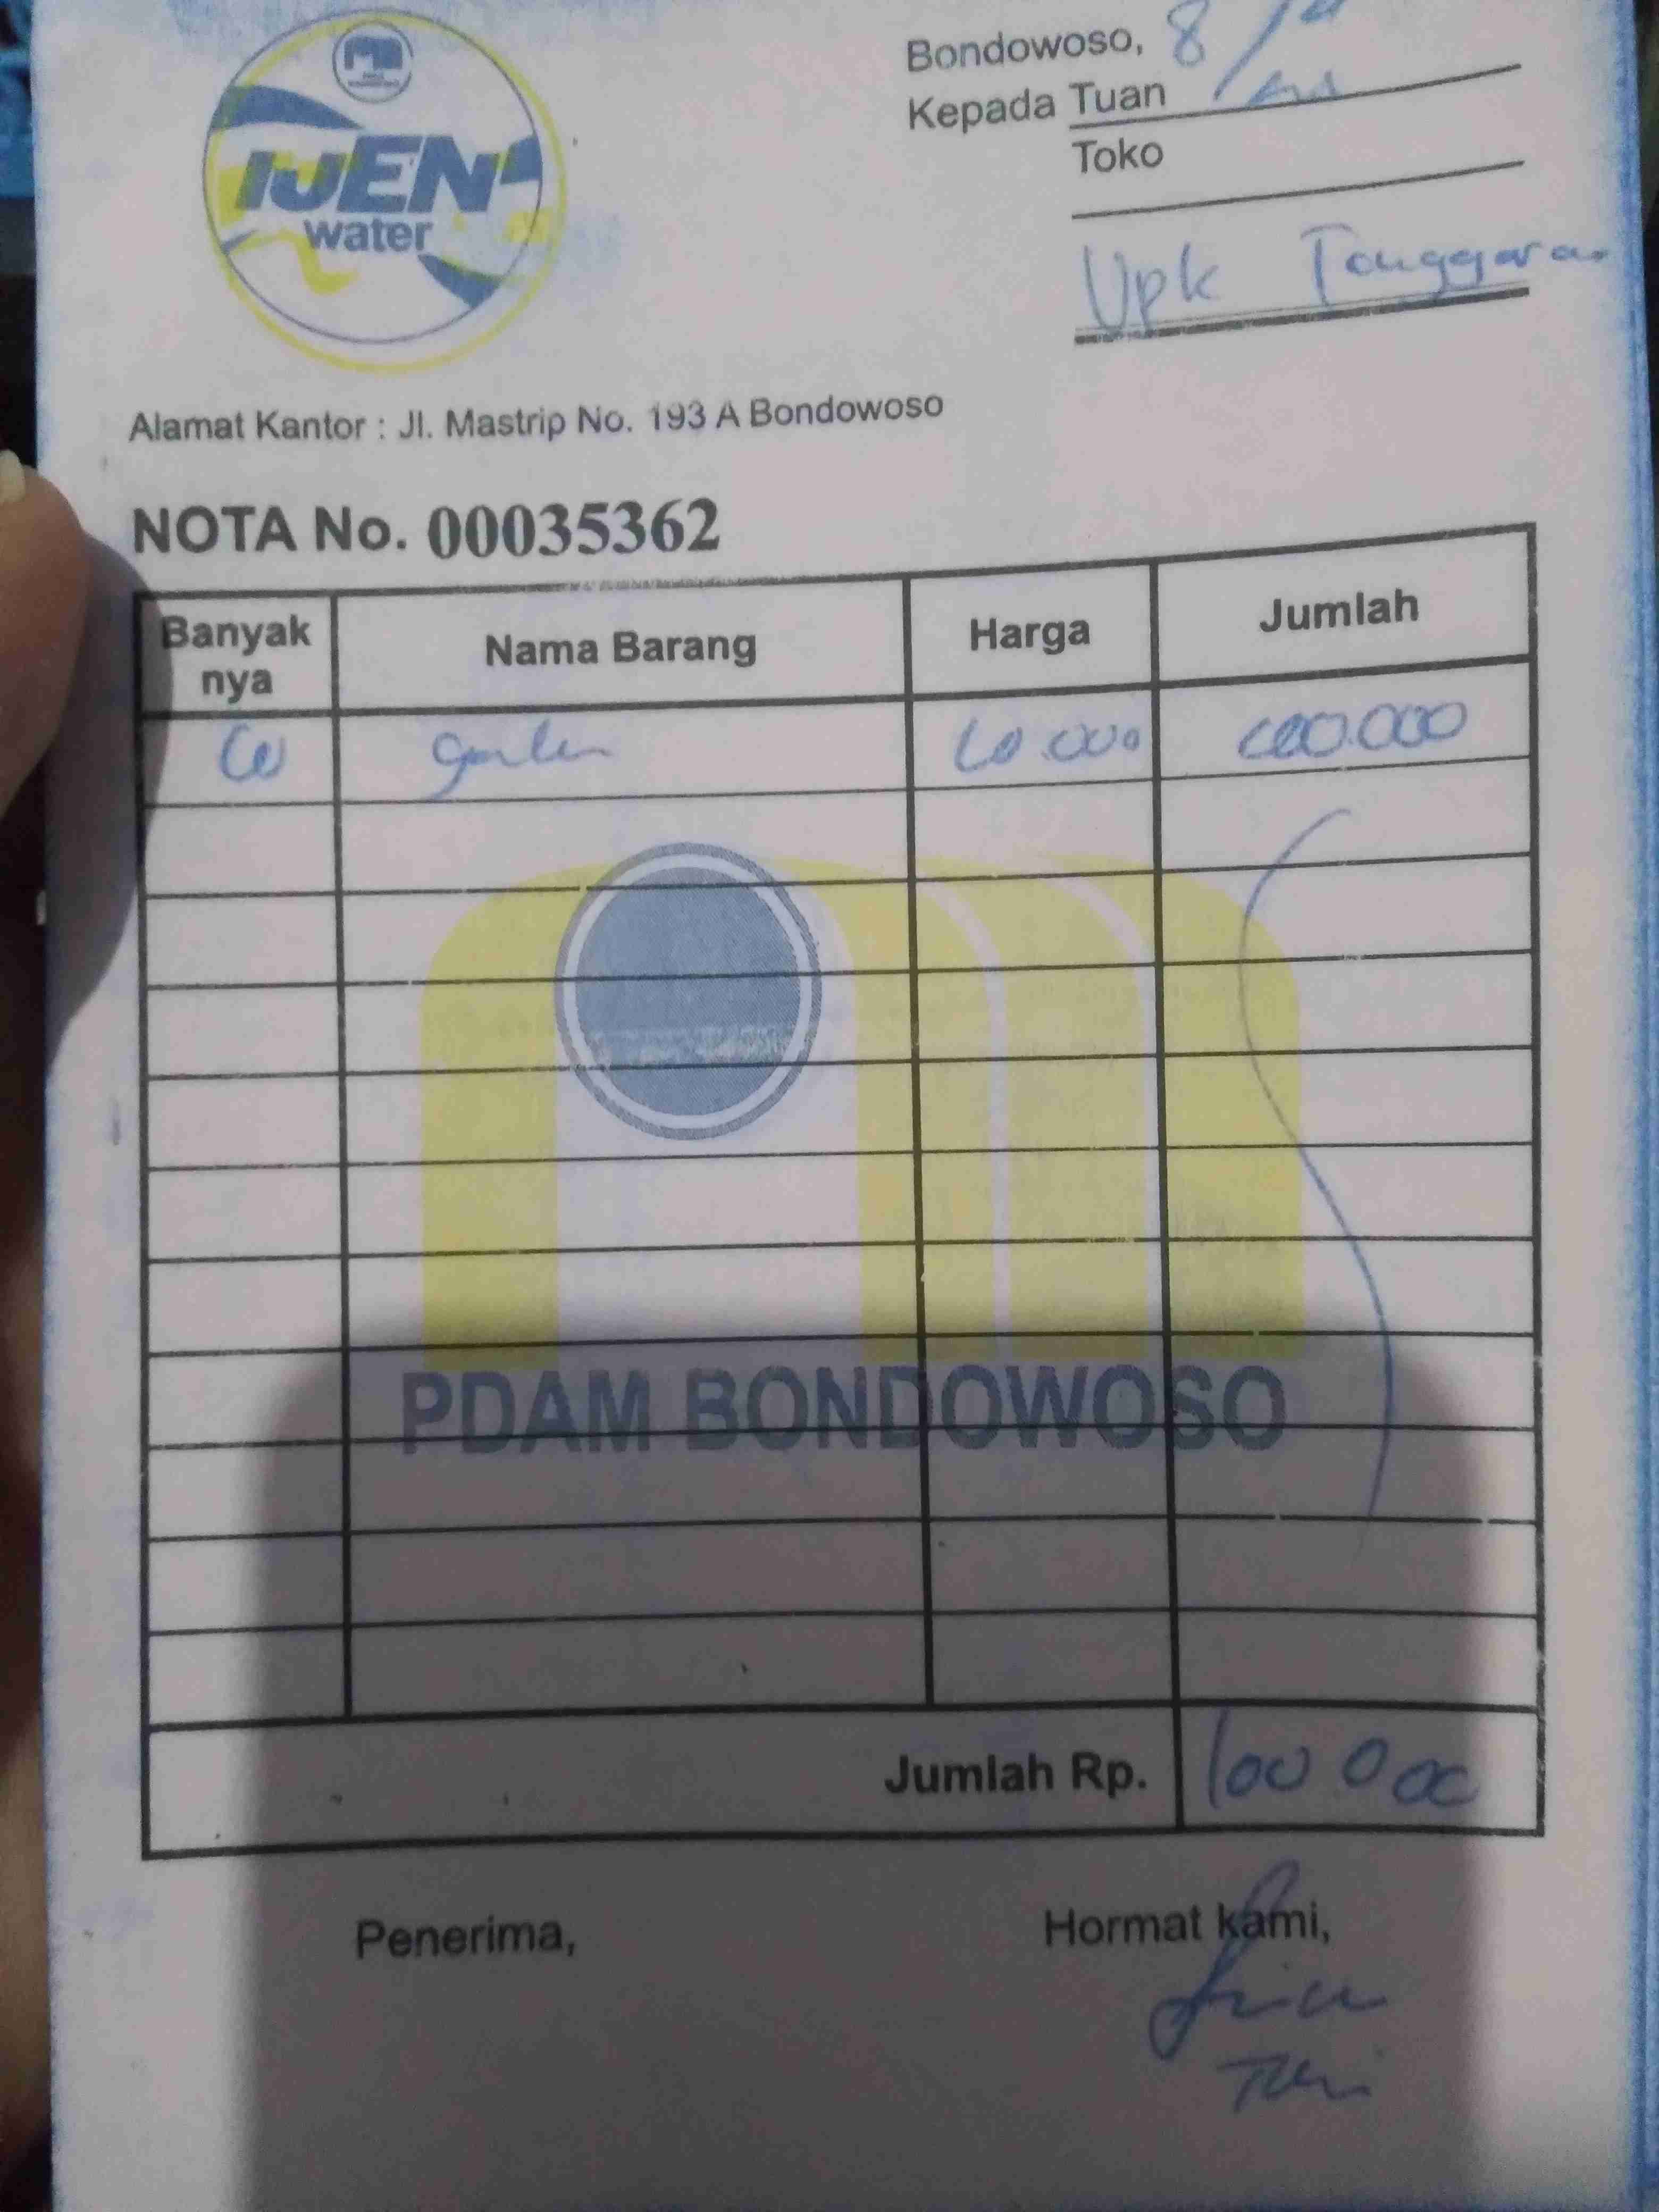 IJEN
water
Bondowoso, 8/
Kepada Tuan
Toko
Upk Tanggaran
Alamat Kantor : Jl. Mastrip No. 193 A Bondowoso
NOTA No. 00035362
Banyak nya Nama Barang Harga Jumlah
10 10.000 100.000
PDAM BONDOWOSO
Jumlah Rp. 100.000
Penerima, Hormat kami,